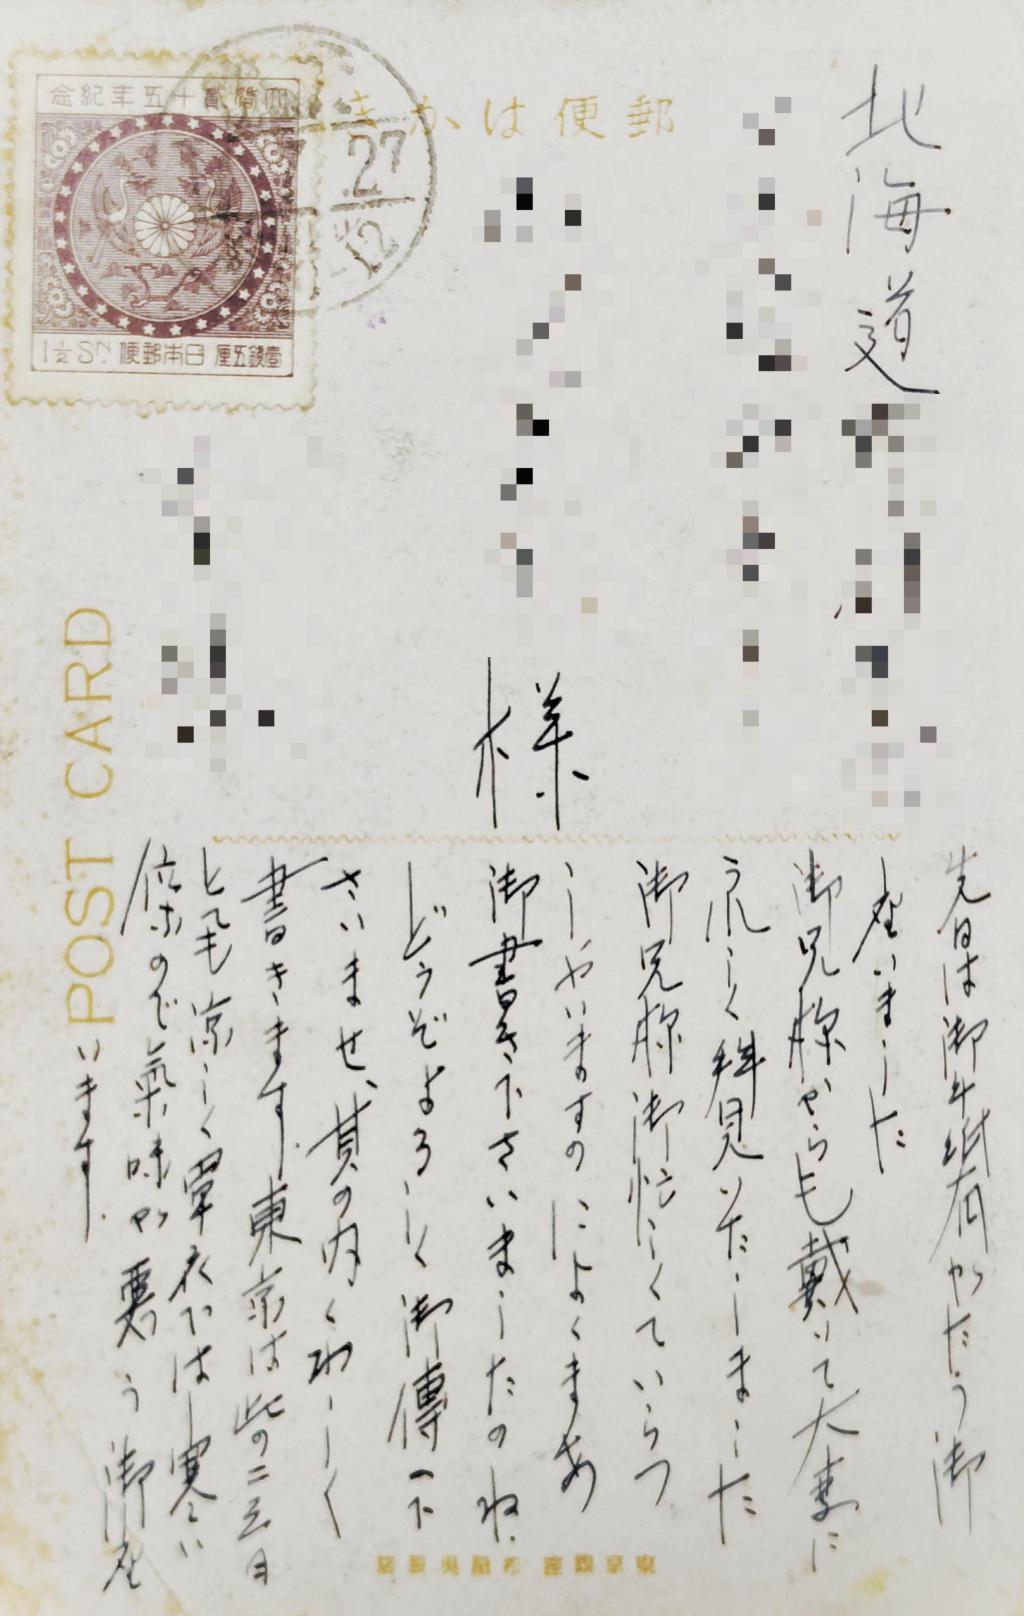 郵便はかき
大婚貳十五年紀念
壹錢五厘 日本郵便 1½Sn.
27
12
北海道
様
POST CARD
先日は御手紙有がたう御
座いました
御兄様からも戴いて大変に
うれしく拝見いたしました
御兄様御忙しくていらつ
しやいますのによくまあ
御書き下さいましたのね、
どうぞよろしく御傳へ下
さいませ、其の内くわしく
書きます、東京は此の二三日
とても涼しく単衣では寒い
位なので氣味が悪う御座
います、
東京銀座 松屋呉服店